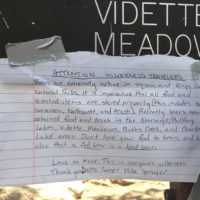 VIDETTE
MEADOW
ATTENTION WILDERNESS TRAVELERS
Bears are extremely active in Sequoia and Kings Ca
National Parks. It is imperative that all food and
scented items are stored properly (this includes s
sunscreen, toothpaste, and trash). Recently bears have
obtained food and trash in the Rae Lakes/Bullfrog
Lakes, Vidette Meadows, Bubbs Creek, and Charlotte
Lake areas. Don't lose your food to bears, and
also that a fed bear is a dead bear.
Leave no trace. This is everyone's wilderness.
Thank you, Ranger